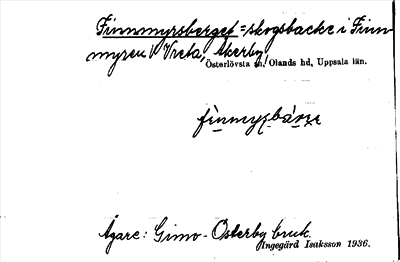 Finnmyrsberget = skogsbacke i Finn-
myren \ Vreta, Åkerby
Österlövsta sn, Olands hd, Uppsala län.
Ägare: Gimo-Österby bruk.
Ingegärd Isaksson 1936.